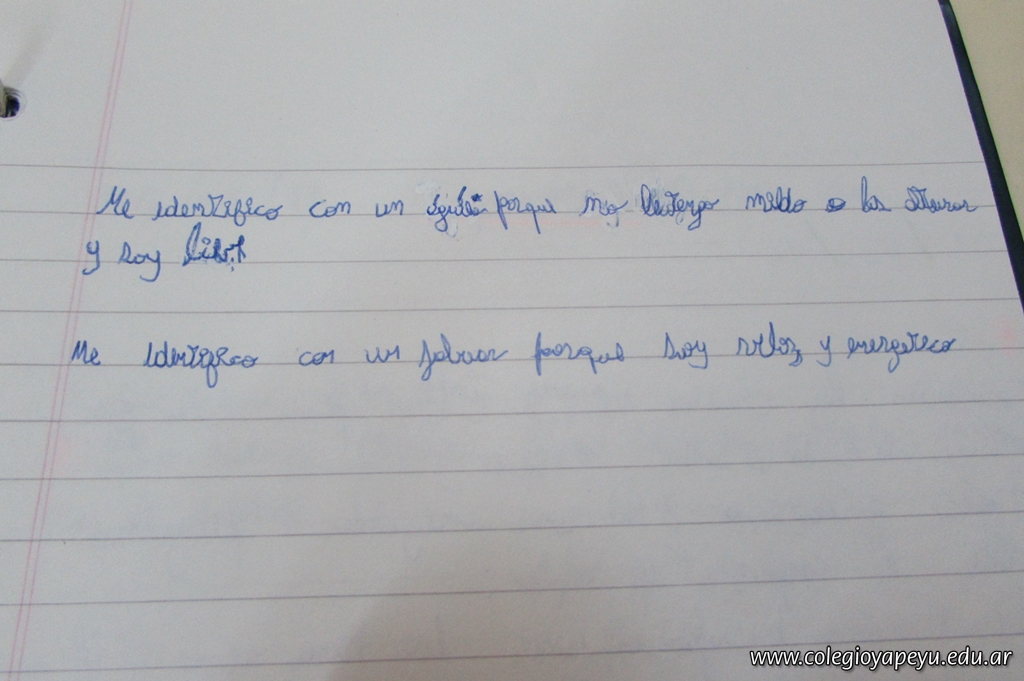 Me identifico con un aguila porque no le tengo miedo a las alturas
y soy libre
Me identifico con un jaguar porque soy veloz y energetico
www.colegioyapeyu.edu.ar